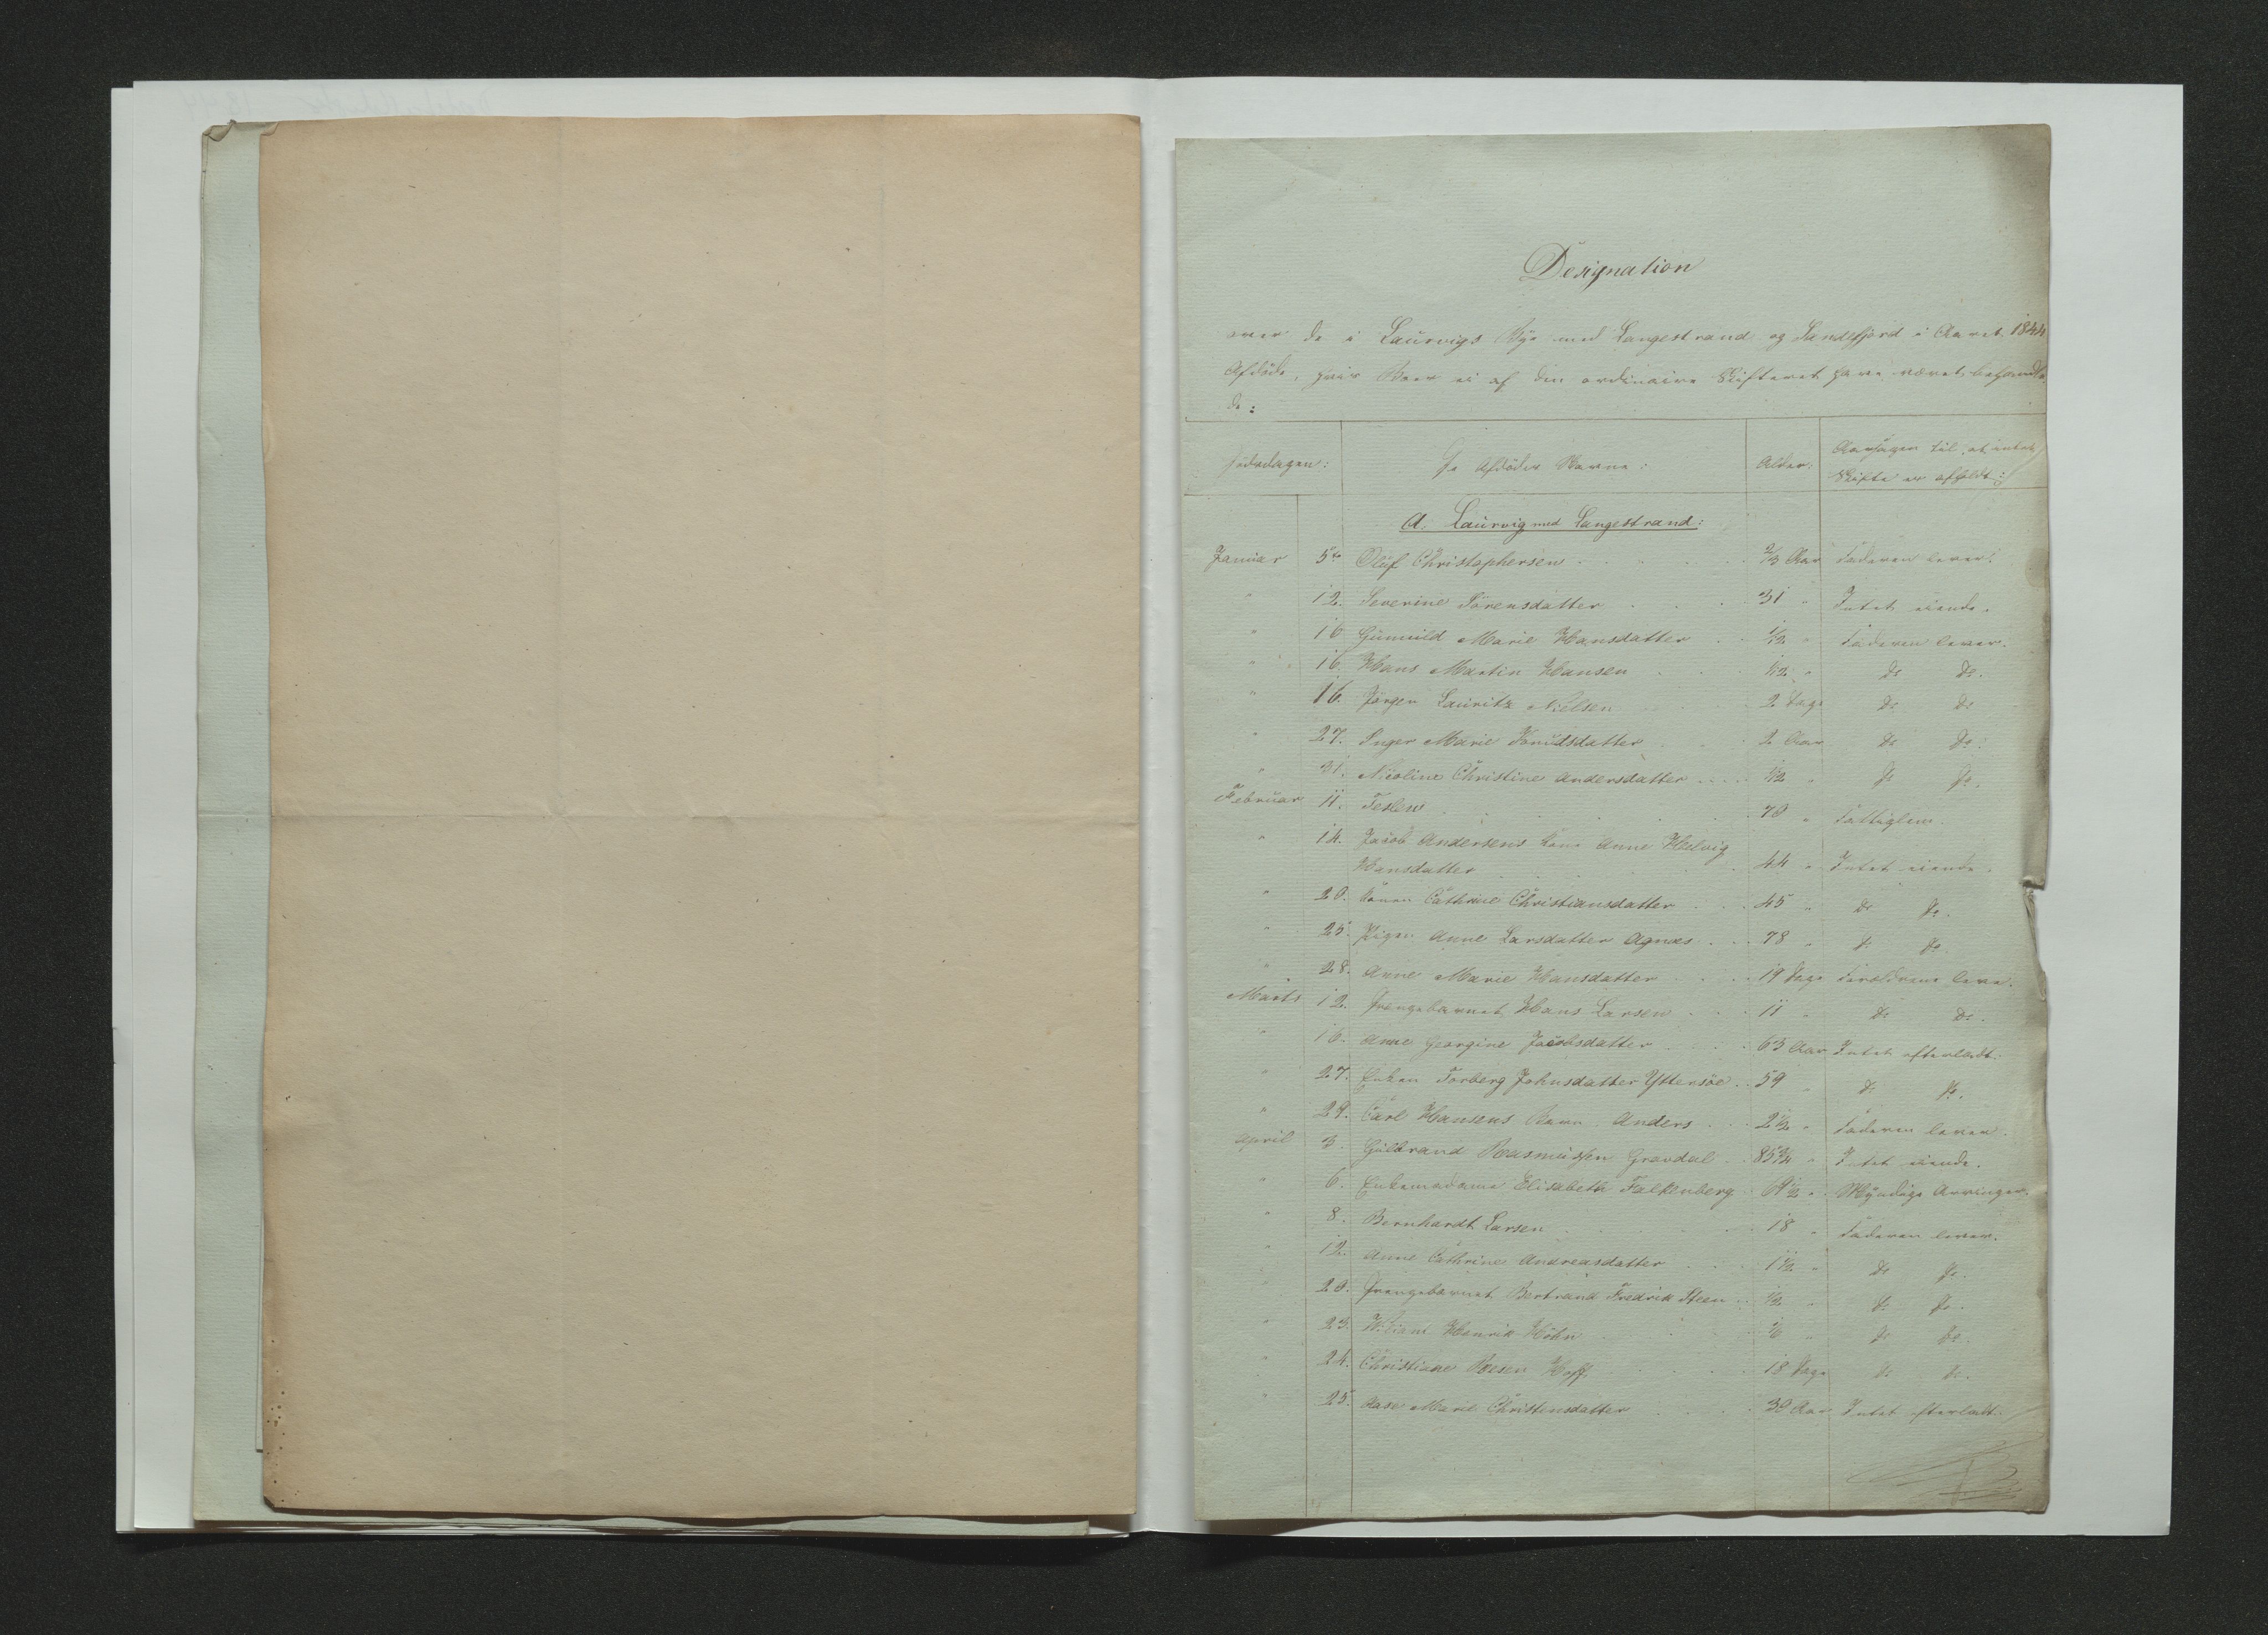 Designation
over de i Laurvigs Bye med Langestrand og Sandefjord i Aaret 1844
Afdøde, hvis Boer ei af den ordinaire Skifteret have været behandle-
de:
Dødsdagen: De Afdødes Navne: Alder: Aarsagen til, at intet
Skifte er afholdt:
A. Laurvig med Langestrand:
Januar 5te Oluf Christophersen 2/3 Aar Faderen lever.
" 12. Severine Sørensdatter 31 " Intet eiende.
" 16 Gunnild Marie Hansdatter 1/12 " Faderen lever.
" 16. Hans Martin Hansen 1/12 " Do Do.
" 16. Jørgen Lauritz Nielsen 2 Dage Do Do
" 27. Inger Marie Knudsdatter 2 Aar Do Do.
" 31. Nicoline Christine Andersdatter 1/12 " Do Do.
Februar 11. Teslew 70 " Fattiglem.
" 14. Jacob Andersens Kone Anne Helvig
Hansdatter 44 " Intet eiende.
" 20. Konen Cathrine Christiansdatter 45 " Do Do.
" 25. Pigen Anne Larsdatter Agnæs 78 " Do Do.
" 28. Anne Marie Hansdatter 19 Dage Forældrene leve.
Marts 12. Drengebarnet Hans Larsen 11 " Do Do.
" 16. Anne Georgine Jacobsdatter 63 Aar Intet efterladt.
" 27. Enken Torberg Johnsdatter Yttersöe 59 " Do Do.
" 29. Carl Hansens Barn Anders 2 1/2 " Faderen lever.
April 3. Guldbrand Rasmussen Gravdal 85 3/4 " Intet eiende.
" 6. Enkemadame Elisabeth Falkenberg 61 1/2 " Myndige Arvinger.
" 8. Bernhardt Larsen 18 " Faderen lever.
" 12. Anne Cathrine Andreasdatter 1 1/2 " Do Do.
" 20. Drengebarnet Bertrand Fredrik Steen 1/2 " Do Do.
" 23. Wiliam Henrik Höhn 1/6 " Do Do.
" 24. Christiane Boesen Hoff 18 Dage Do Do.
" 25. Aase Marie Christensdatter 30 Aar Intet efterladt.